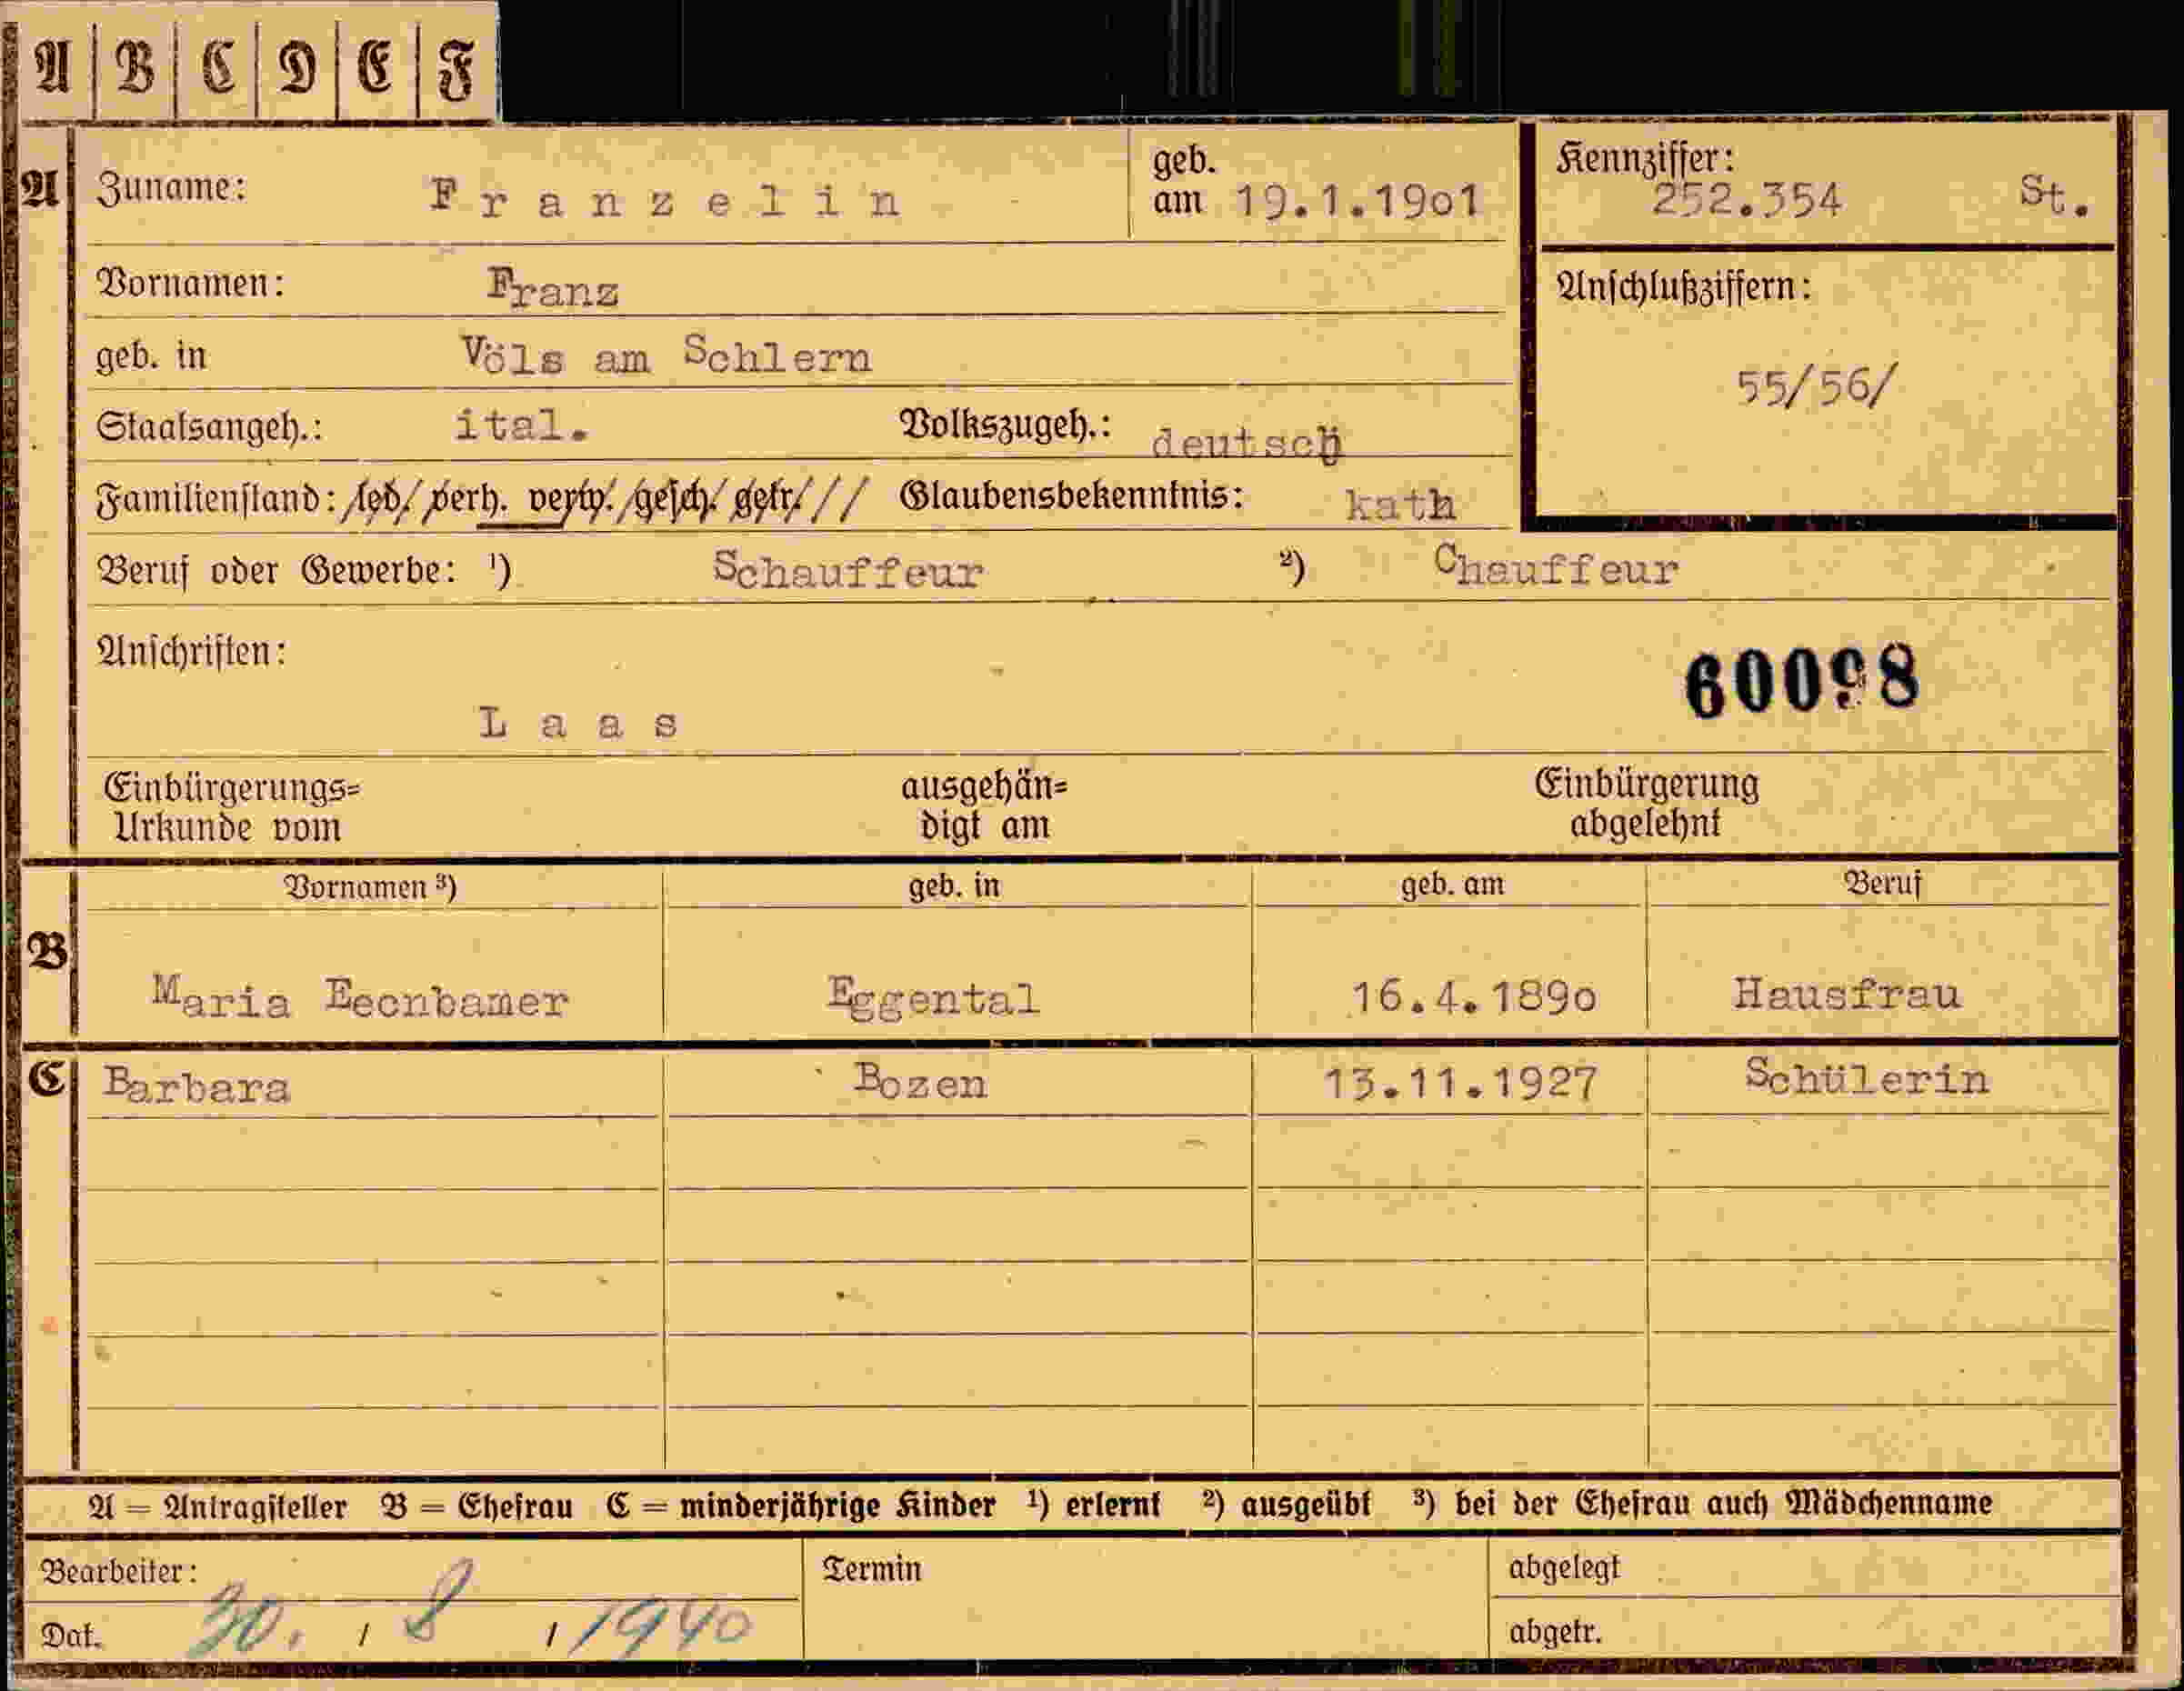 A B C D E F
A Zuname: Franzelin geb. am 19.1.19o1 Kennziffer: 252.354 St.
Vornamen: Franz
Anschlußziffern:
geb. in Völs am Schlern
55/56/
Staatsangeh.: ital. Volkszugeh.: deutsch
Familienstand: led/ verh. verw. gesch. getr. /// Glaubensbekenntnis: kath
Beruf oder Gewerbe: ¹) Schauffeur ²) Chauffeur
Anschriften:
60098
Laas
Einbürgerungs= ausgehän= Einbürgerung
Urkunde vom digt am abgelehnt
B Vornamen ³) geb. in geb. am Beruf
Maria Eecnbamer Eggental 16.4.189o Hausfrau
C Barbara Bozen 13.11.1927 Schülerin
A = Antragsteller B = Ehefrau C = minderjährige Kinder ¹) erlernt ²) ausgeübt ³) bei der Ehefrau auch Mädchenname
Bearbeiter: Termin abgelegt
Dat. 30. / 8 / 1940 abgetr.